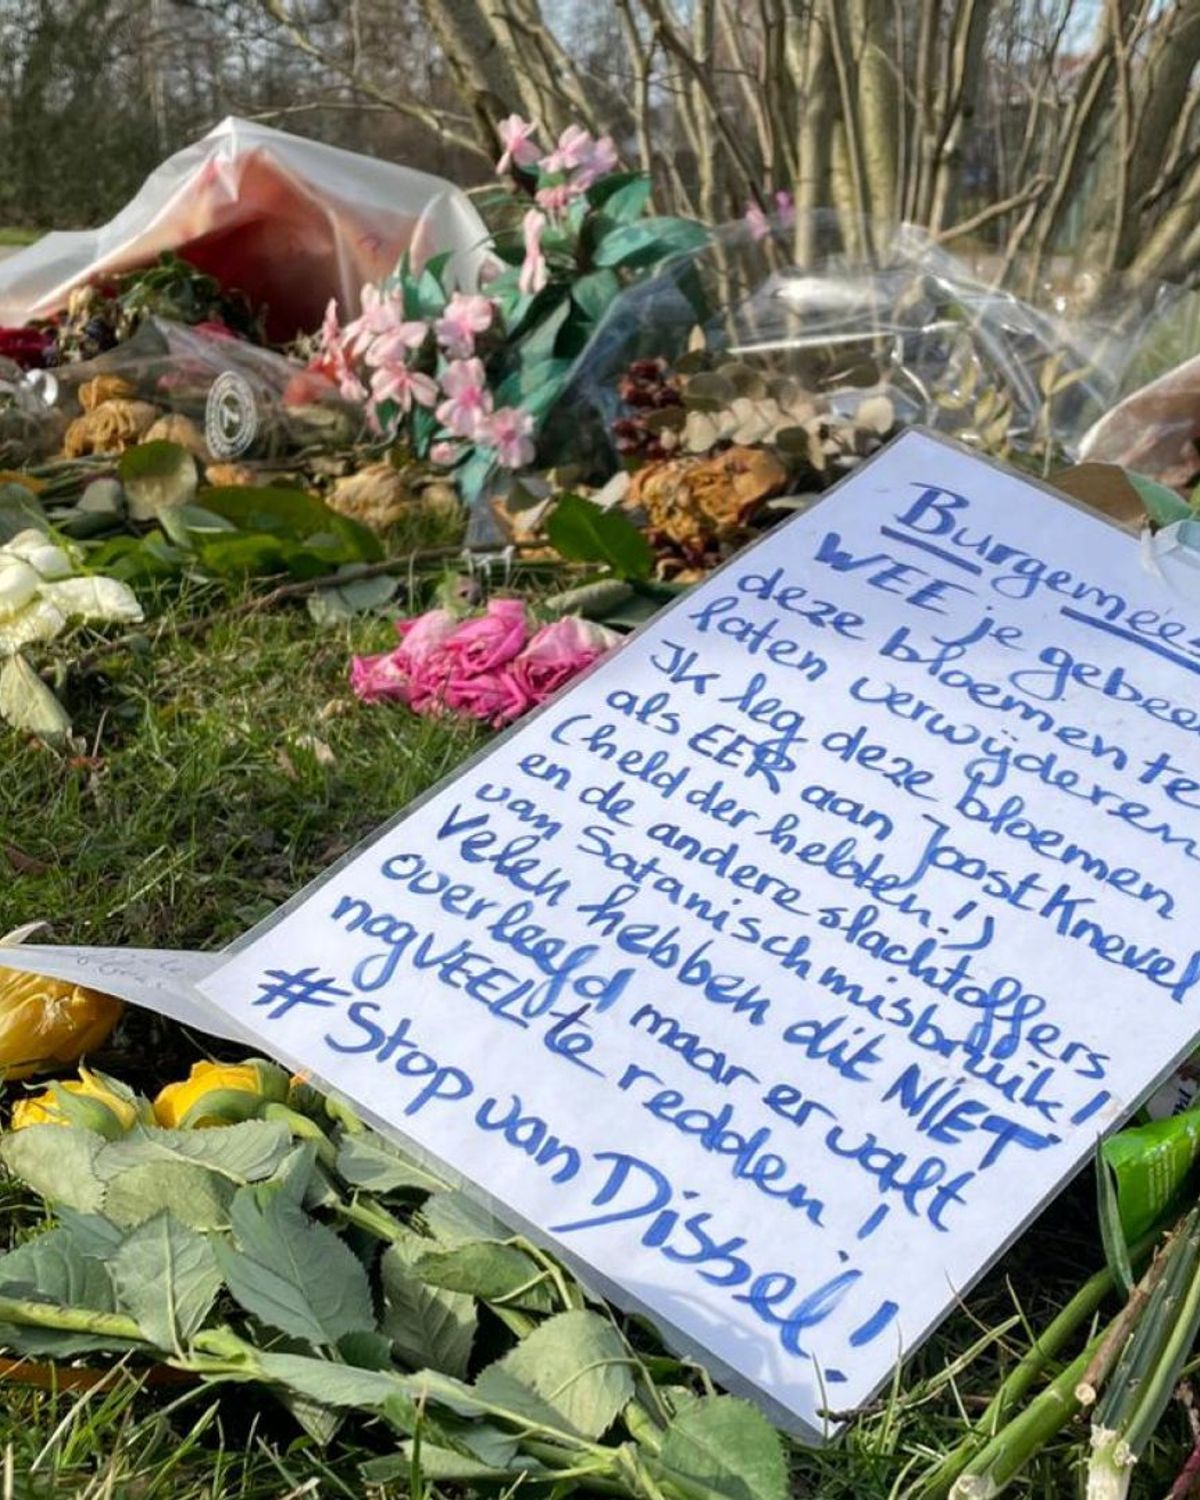 Burgemees
WEE je gebee
deze bloemen te
laten verwijderen
Ik leg deze bloemen
als EER aan Joost Knevel
(held der helden!)
en de andere slachtoffers
van Satanisch misbruik!
Velen hebben dit NIET
overleefd maar er valt
nog VEEL te redden!
#Stop van Dissel!